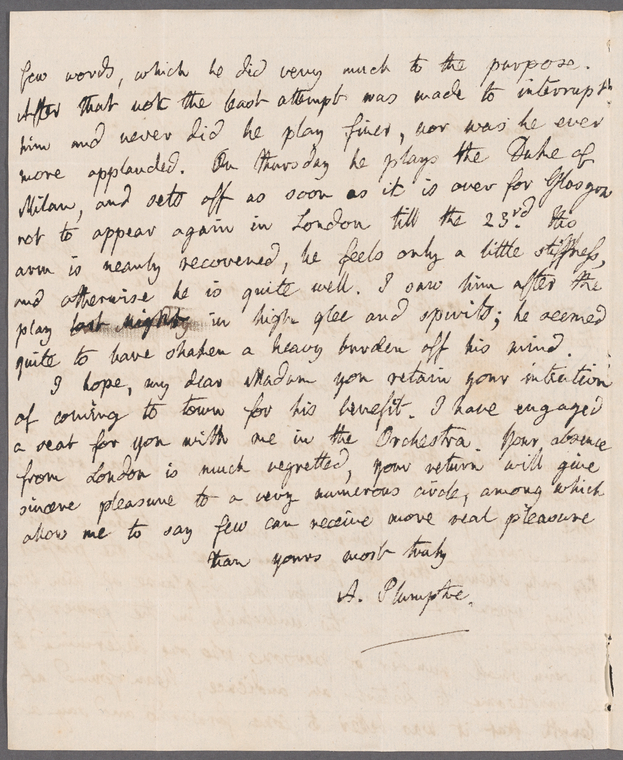 few words, which he did very much to the purpose.
After that not the least attempt was made to interrupt
him and never did he play finer, nor was he ever
more applauded. On thursday he plays the Duke of
Milan, and sets off as soon as it is over for Glasgow
not to appear again in London till the 23rd. His
arm is nearly recovered, he feels only a little stiffness,
and otherwise he is quite well. I saw him after the
play last night in high glee and spirits; he seemed
quite to have shaken a heavy burden off his mind.
I hope, my dear Madam you retain your intention
of coming to town for his benefit. I have engaged
a seat for you with me in the Orchestra. Your absence
from London is much regretted, your return will give
sincere pleasure to a very numerous circle, among which
allow me to say few can receive more real pleasure
than yours most truly
A. Plumptre.